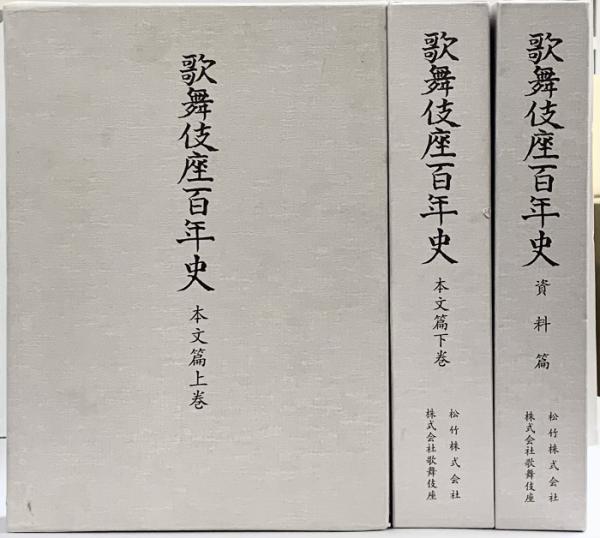 歌舞伎座百年史
本文篇上巻
歌舞伎座百年史
本文篇下巻
松竹株式会社
株式会社歌舞伎座
歌舞伎座百年史
資料篇
松竹株式会社
株式会社歌舞伎座